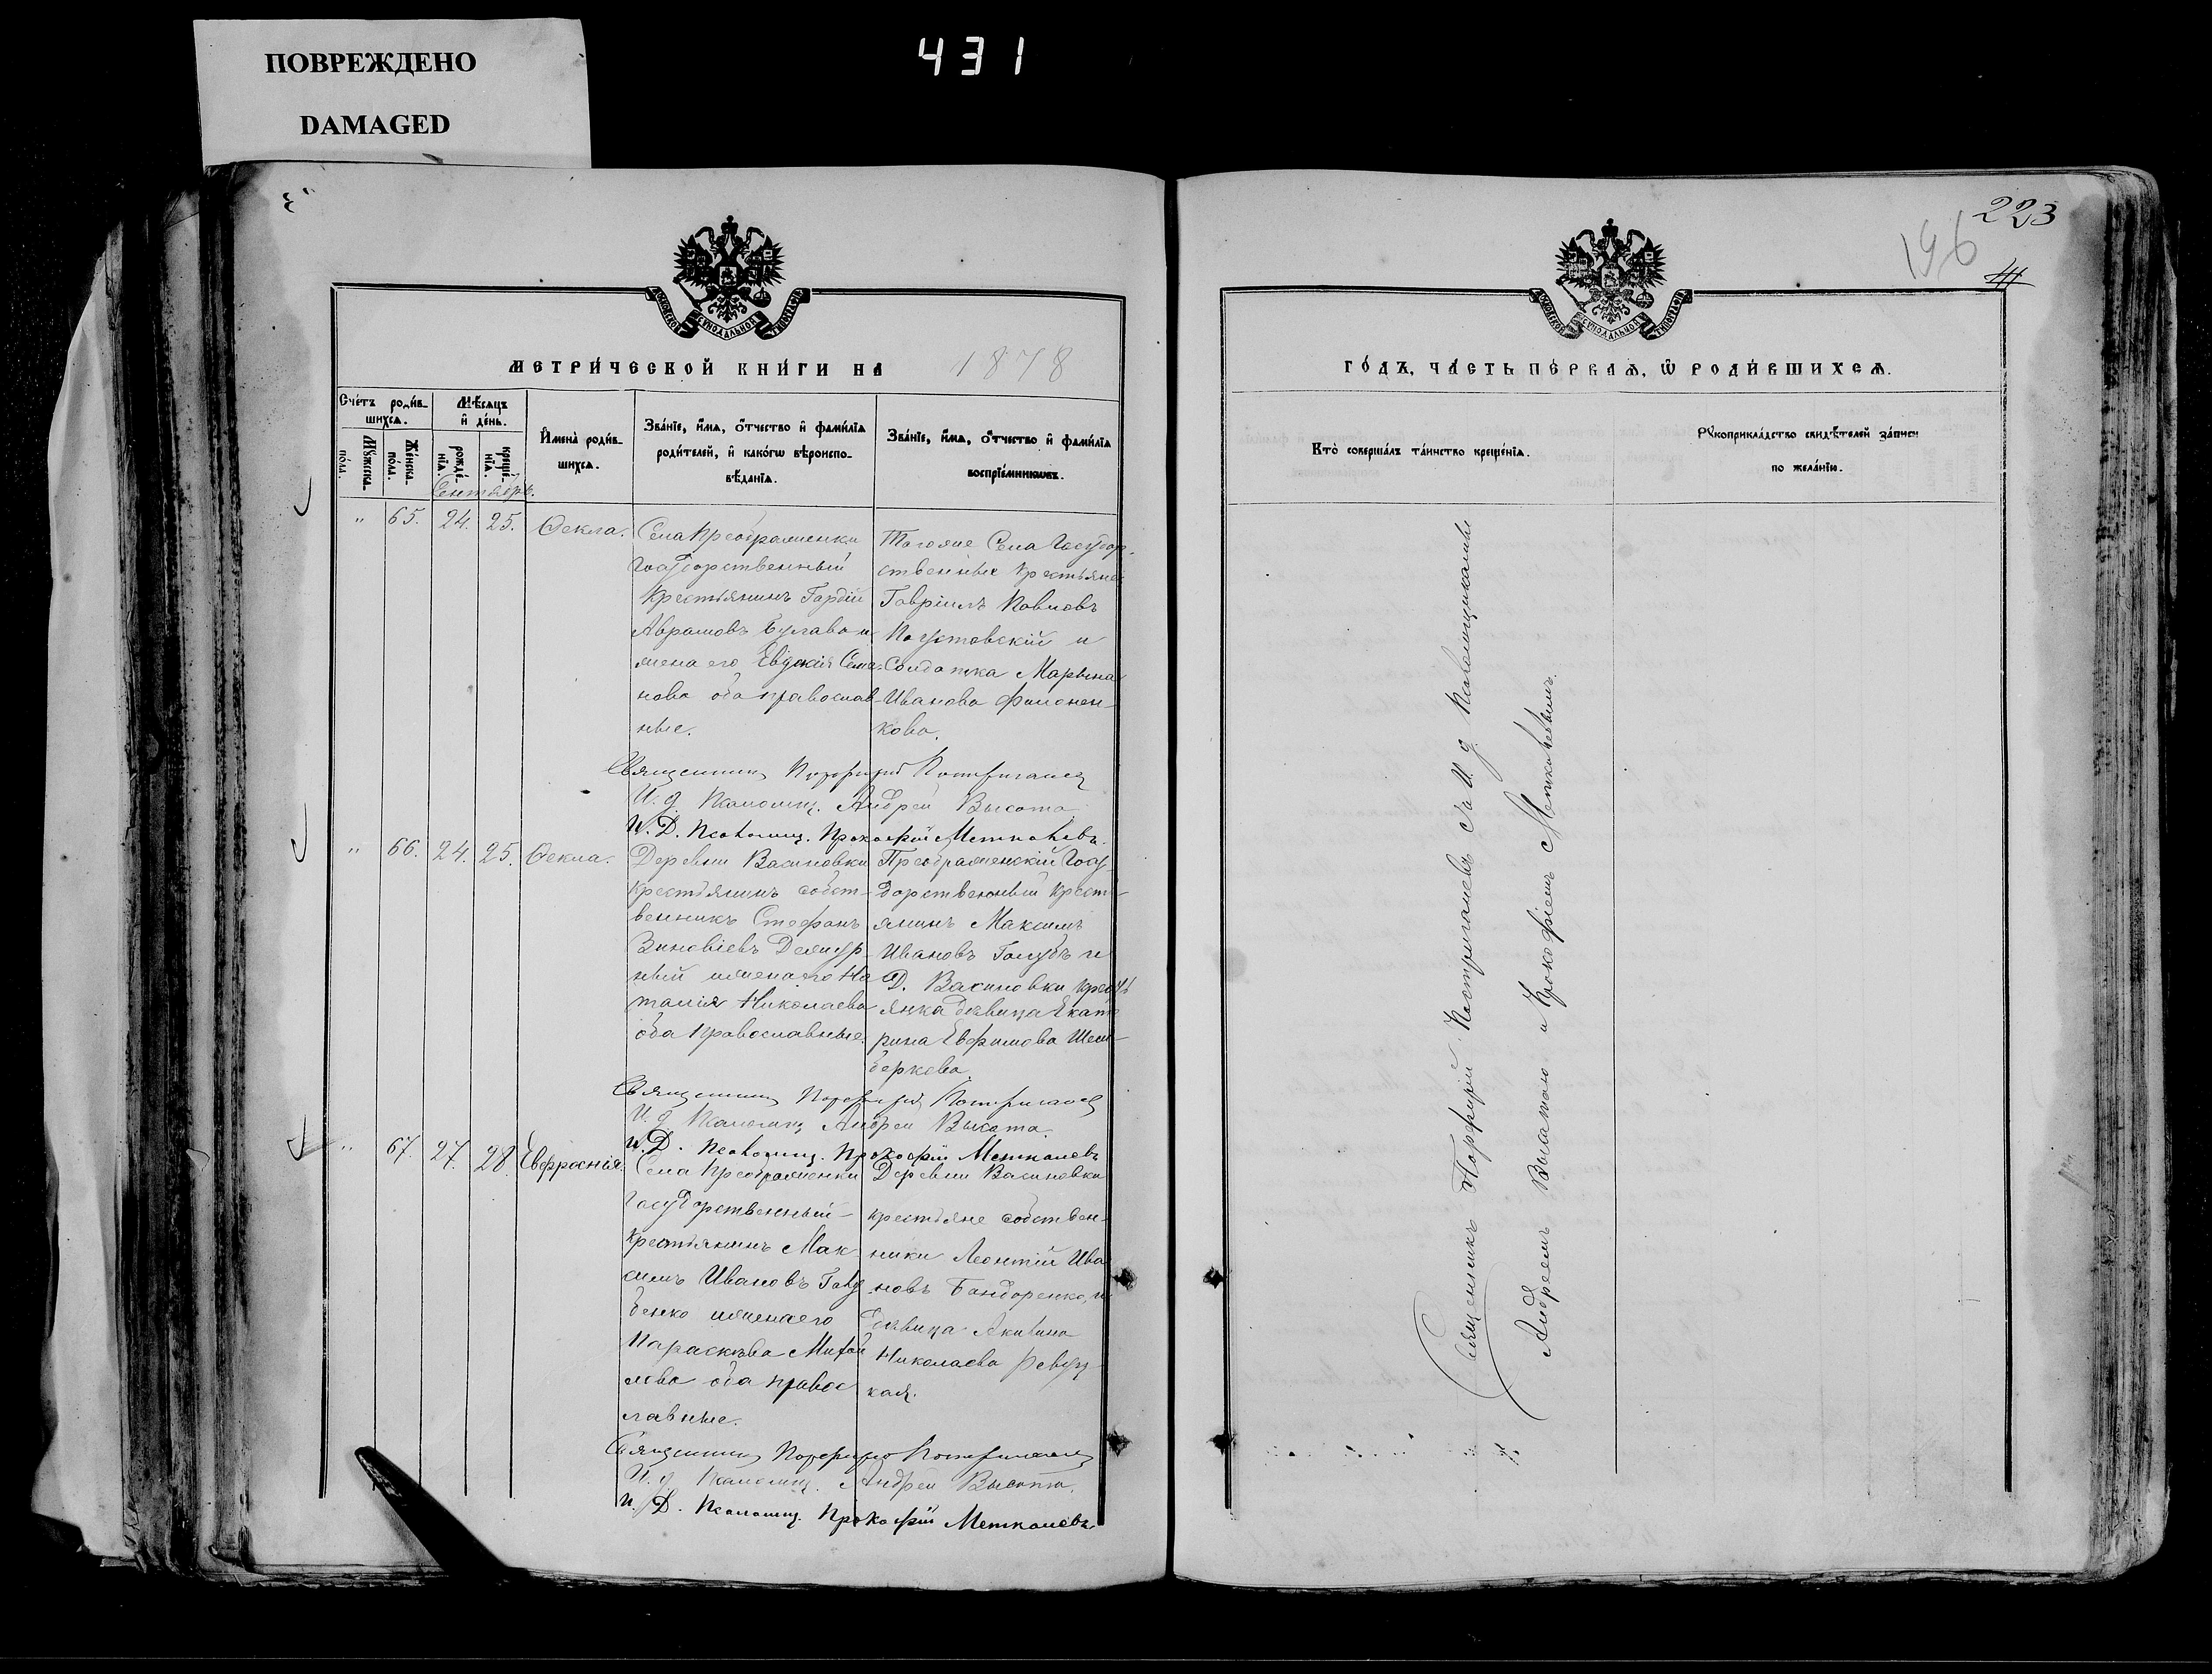 ПОВРЕЖДЕНО
DAMAGED
431
МЕТРИ́ЧЕСКОЙ КНИ́ГИ НА 1878
Сче́тъ роди́в-
шихсѧ.
Мꙋ́жеска
по́ла.
Же́нска
по́ла.
Мѣ́сѧцъ
и҆ де́нь.
рожде́-
нїѧ.
креще́-
нїѧ.
Сентябрь.
И҆мена̀ роди́в-
шихсѧ.
Зва́нїе, и҆́мѧ, ѻ҆́тчество и҆ фами́лїѧ
роди́телей, и҆ како́гѡ вѣроиспо-
вѣ́данїѧ.
Зва́нїе, и҆́мѧ, ѻ҆́тчество и҆ фами́лїѧ
воспрїе́мниковъ.
" 65. 24. 25. Ѳекла.
Села Преображенки
Государственный
крестьянинъ Гордій
Аврамовъ Булава и
жена его Евдокія Семе-
нова оба православ-
ные.
Тогоже Села Государ-
ственные крестьяне
Гавріилъ Павловъ
Пустовскій и
Солдатка Марьина
Иванова Филонен-
кова.
Священникъ Порфирій Костригалев
И. д. Псаломщ. Андрей Высота
И. Д. Псаломщ. Прокофій Меткалевъ.
" 66. 24. 25. Ѳекла.
Деревни Васиновки
крестьянинъ собст-
венникъ Стефанъ
Зиновіевъ Дежур-
ный и жена его На-
талія Николаева
оба православные.
Преображенскій Госу-
дарственный крест-
янинъ Максимъ
Ивановъ Голубъ и
Д. Васиновки крест
янка девица Екате
рина Евфимова Шем-
беркова.
Священникъ Порфирій Костригалев
И. д. Псаломщ. Андрей Высота.
И. Д. Псаломщ. Прокофій Меткалевъ
" 67. 27. 28. Евфросинія.
Села Преображенки
Государственный
крестьянинъ Мак-
симъ Ивановъ Голу
бенко и жена его
Параскева Михай
лова оба правос
лавные.
Деревни Васиновки
крестьяне собствен-
ники Леонтій Ива
новъ Бандоренко, и
девица Акилина
Николаева Ревуц
кая.
Священникъ Порфирій Костригалев
И. д. Псаломщ. Андрей Высота.
И. Д. Псаломщ. Прокофій Меткалевъ
223
196
ГО́ДЪ, ЧА́СТЬ ПЕ́РВАѦ, Ѽ РОДИ́ВШИХСѦ.
Кто̀ соверша́лъ та́инство креще́нїѧ.
Рꙋкоприкла́дство свидѣ́телей за́писи
по жела́нїю.
Священникъ Порфирій Костригалевъ съ И. д. Псаломщиками
Андреемъ Высотою и Прокофіемъ Меткалевымъ.